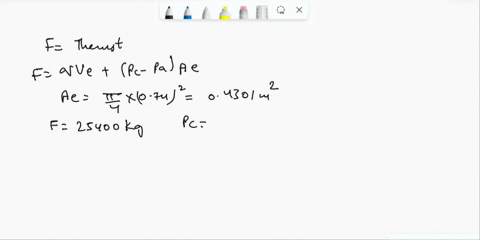 F= Thrust
F= ṁVe + (Pc-Pa) Ae
Ae = π/4 x(0.74)² = 0.4301 m²
F = 25400 kg Pc=